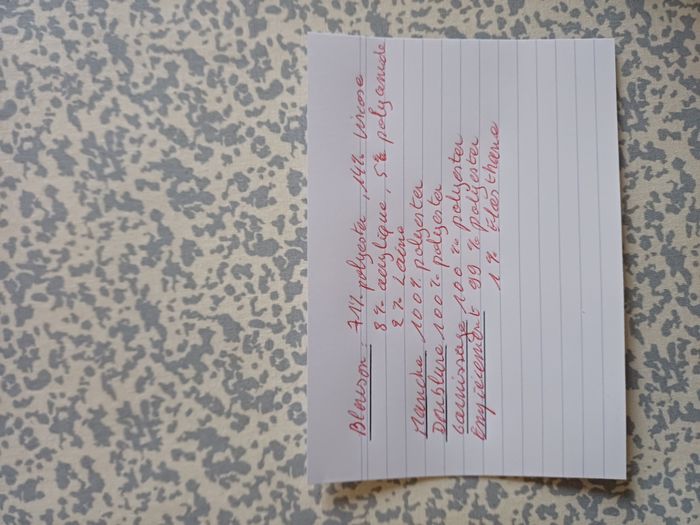 Blouson: 71% polyester, 14% viscose
8% acrylique, 5% polyamide
2% Laine
Manche 100% polyester
Doublure 100% polyester
Garnissage 100% polyester
Empiècement 99% polyester
1% élasthane